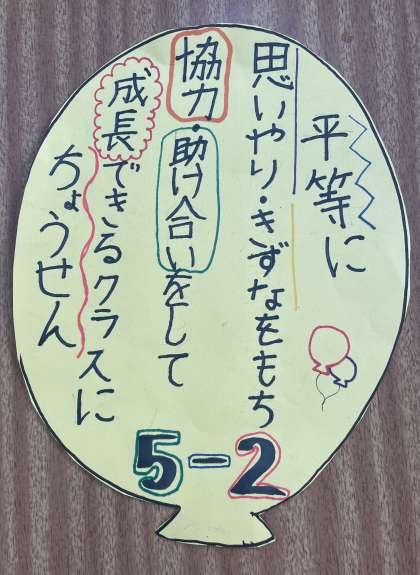 平等に
思いやり・きずなをもち
協力・助け合いをして
成長できるクラスに
ちょうせん
5-2